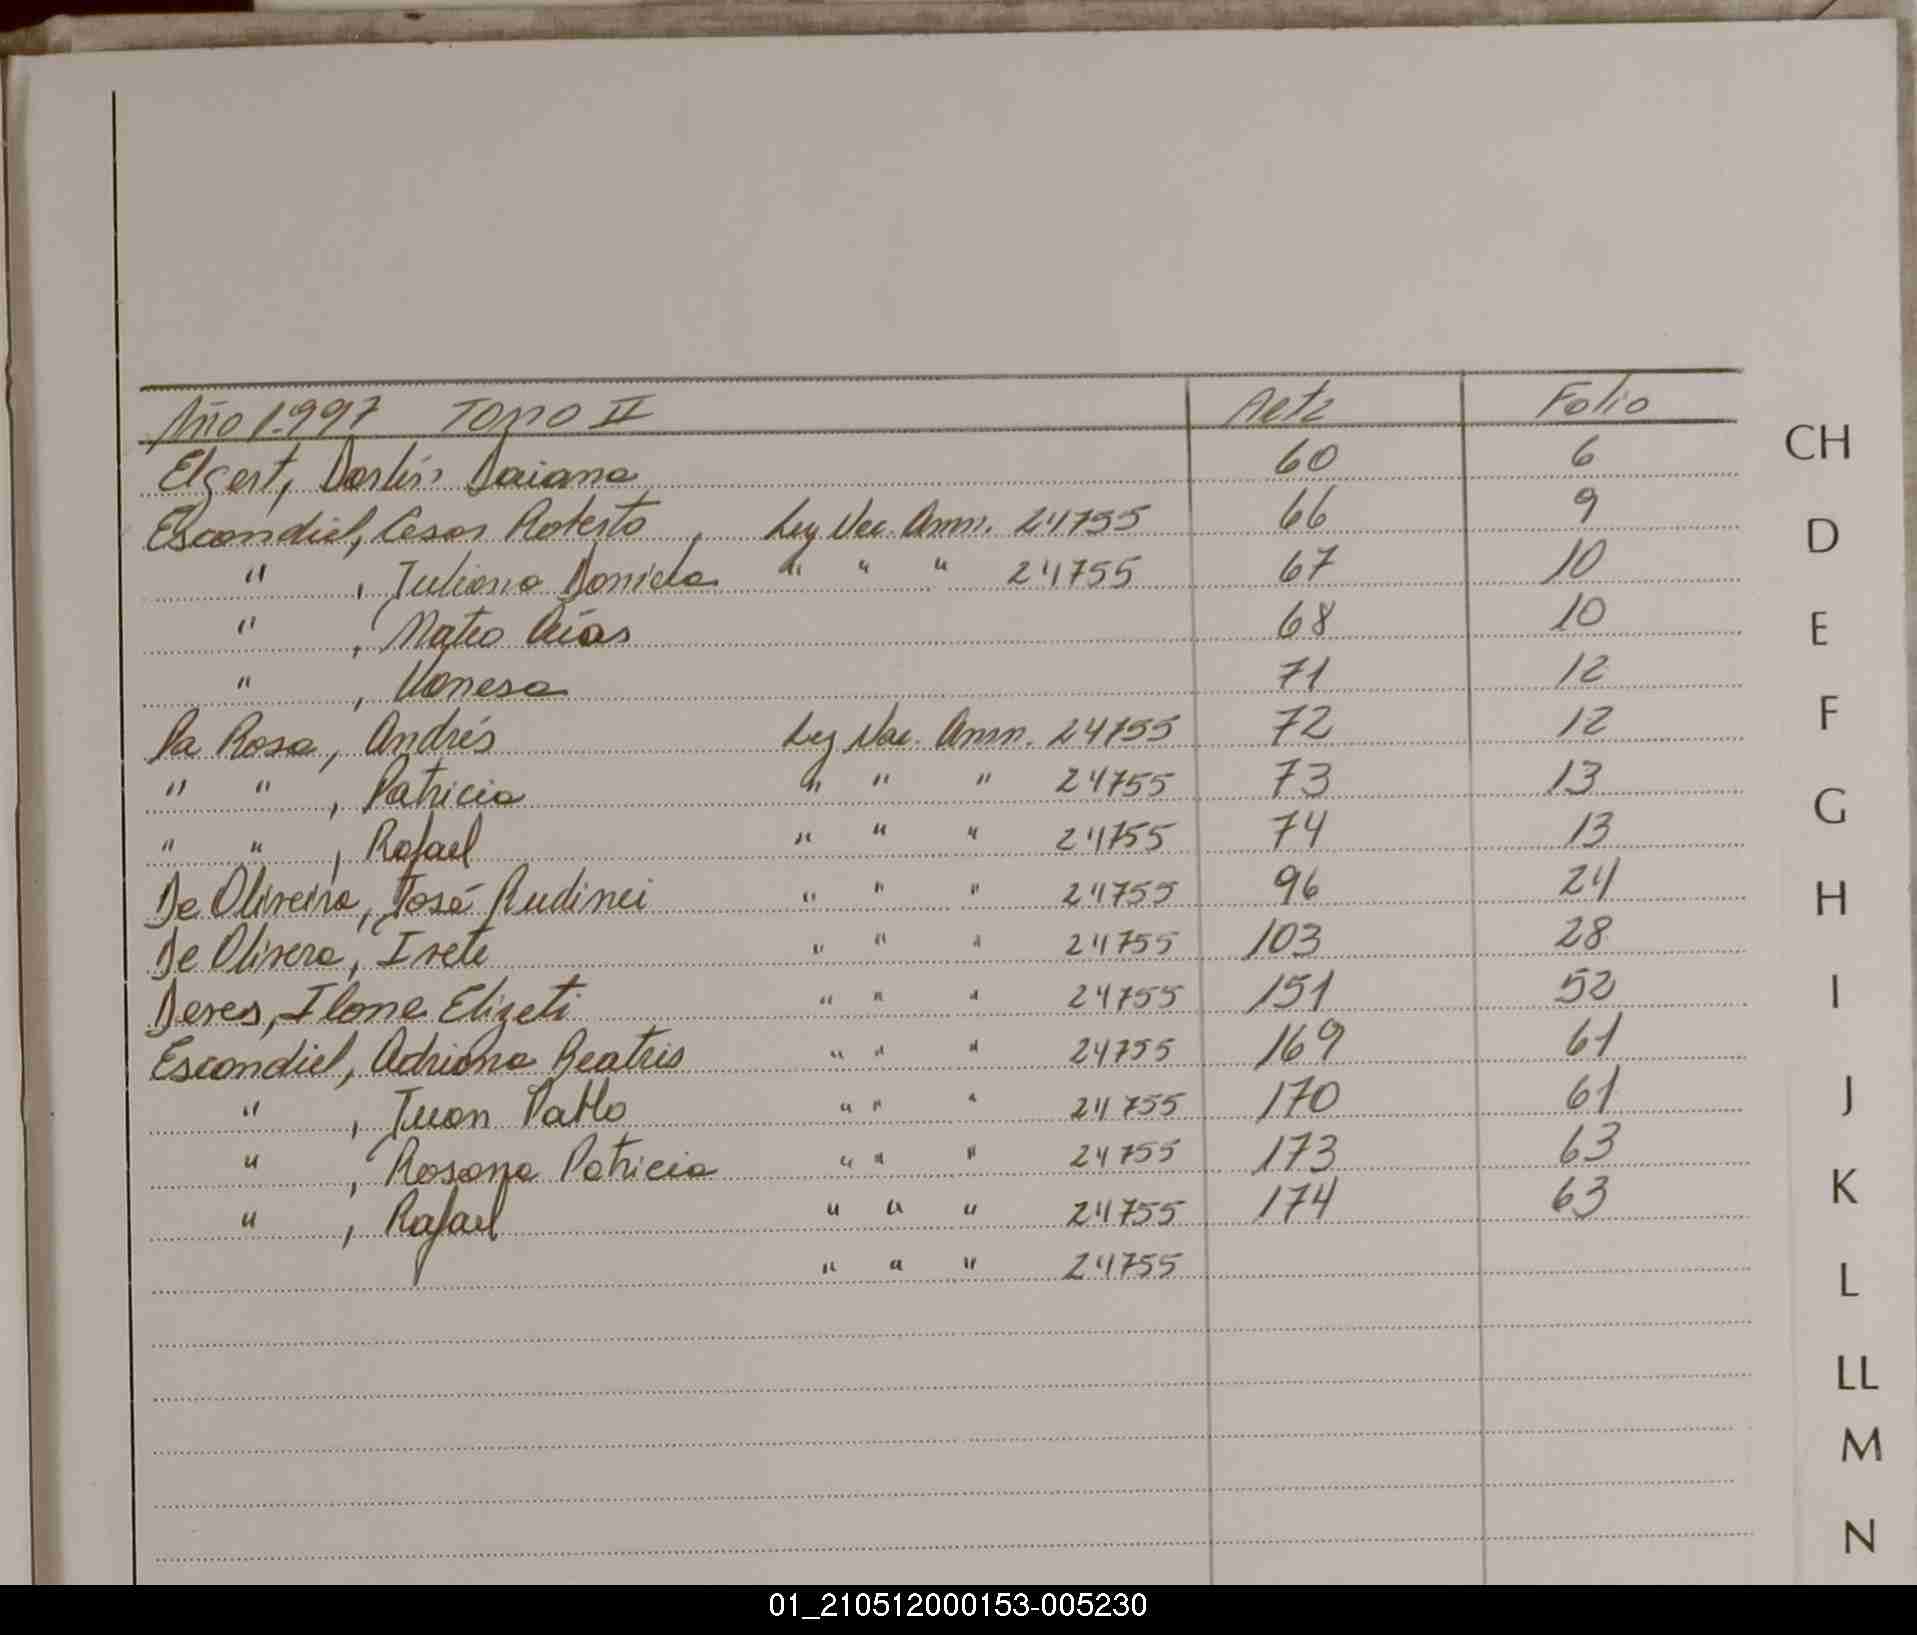 Año 1.997 Tomo II Acta Folio
Elgert, Darlis Daiana 60 6
Escandiel, Cesar Roberto, Ley Nac. Amn. 24755 66 9
" , Juliana Daniela " " " 24755 67 10
" , Mateo Elías 68 10
" , Vanesa 71 12
Da Rosa, Andrés Ley Nac. Amn. 24755 72 12
" " , Patricia " " " 24755 73 13
" " , Rafael " " " 24755 74 13
De Oliveira, José Rudinei " " " 24755 96 24
De Olivera, Ivete " " " 24755 103 28
Deres, Ilone Elizeti " " " 24755 151 52
Escandiel, Adriana Beatris " " " 24755 169 61
" , Juan Pablo " " " 24755 170 61
" , Rosana Patricia " " " 24755 173 63
" , Rafael " " " 24755 174 63
" " " 24755
CH
D
E
F
G
H
I
J
K
L
LL
M
N
01_210512000153-005230